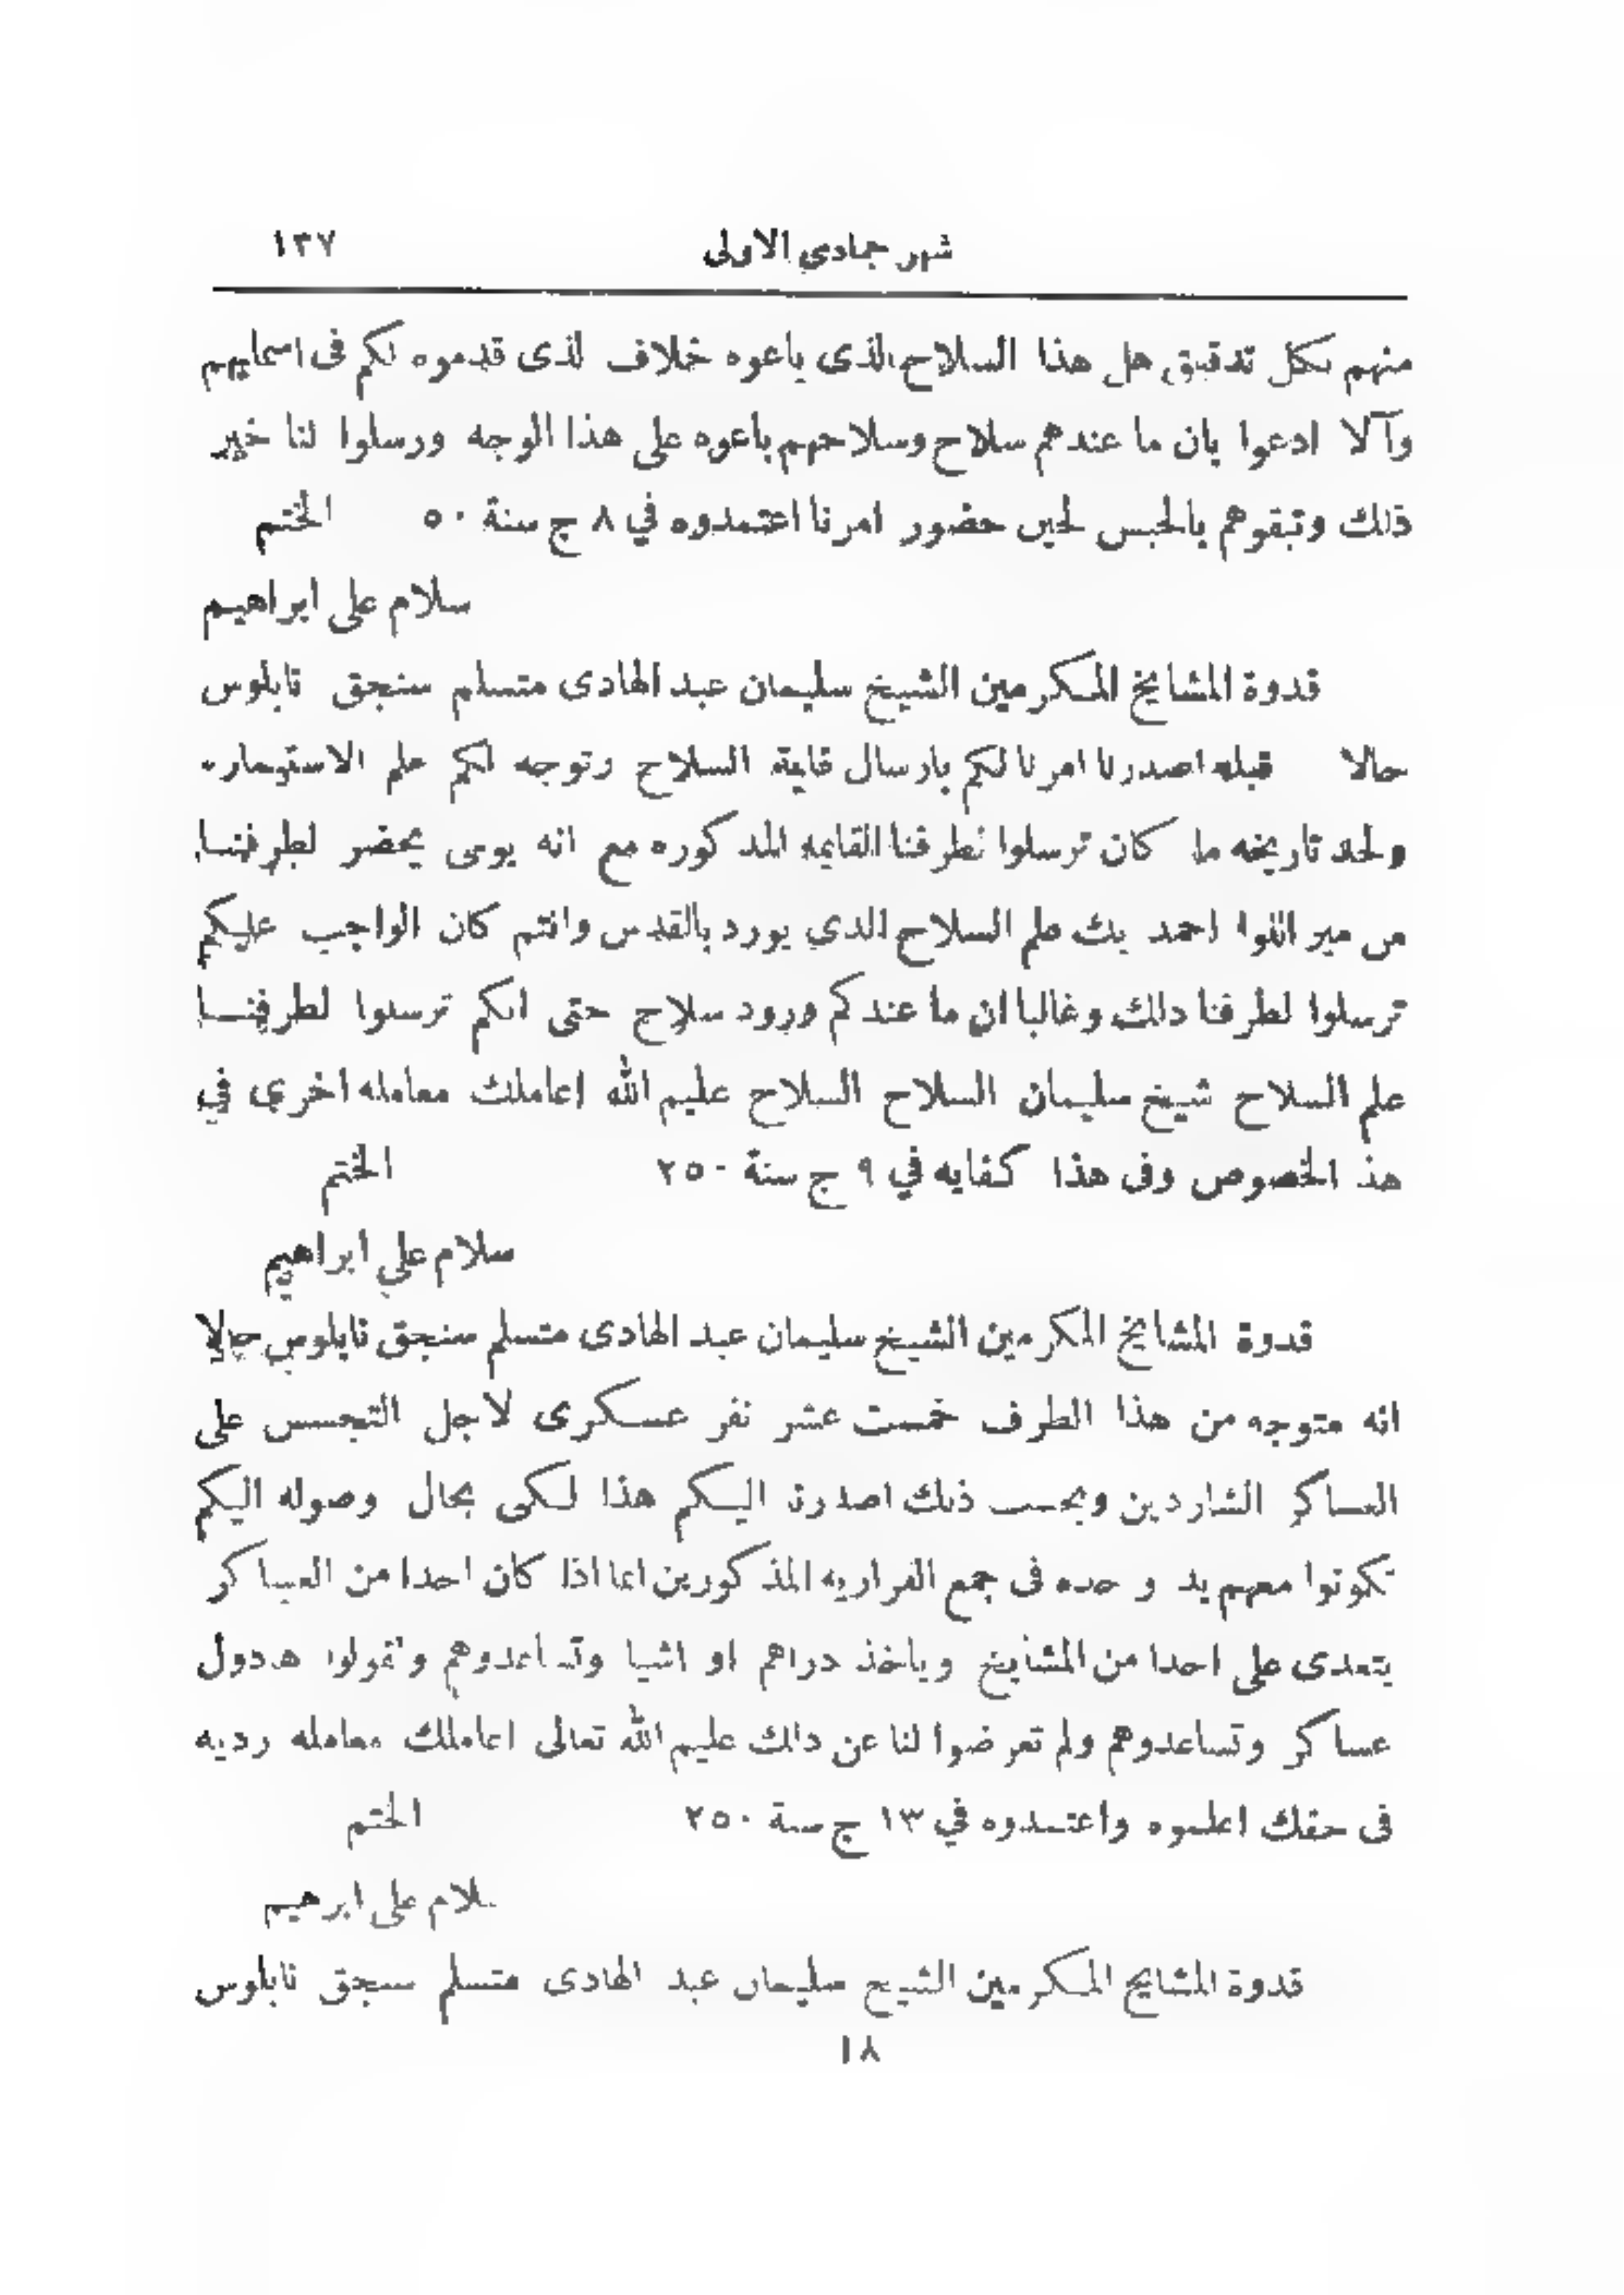 شهر جمادي الاولى ١٣٧
منهم بكل تدقيق هل هذا السلاح الذى باعوه خلاف لذى قدموه لكم فى اسمايهم
وآلا ادعوا بان ما عندهم سلاح وسلاحهم باعوه على هذا الوجه ورسلوا لنا خبر
ذلك وتبقوهم بالحبس لحين حضور امرنا اعتمدوه في ٨ ج سنة ٥٠ الختم
سلام على ابراهيم
قدوة المشايخ المكرمين الشيخ سليمان عبد الهادى متسلم سنجق نابلوس
حالا قبله اصدرنا امرنا لكم بارسال قايمة السلاح وتوجه لكم علم الاستيماره
ولحد تاريخه ما كان ترسلوا لطرفنا القايمه المذكوره مع انه يومى يحضر لطرفنا
من مير اللوا احمد بك علم السلاح الذي يورد بالقدس وانتم كان الواجب عليكم
ترسلوا لطرفنا ذلك وغالبا ان ما عندكم ورود سلاح حتى انكم ترسلوا لطرفنا
علم السلاح شيخ سليمان السلاح السلاح عليم الله اعاملك معامله اخري في
هذ الخصوص وفى هذا كفايه في ٩ ج سنة ٢٥٠ الختم
سلام علي ابراهيم
قدوة المشايخ المكرمين الشيخ سليمان عبد الهادى متسلم سنجق نابلوس حالا
انه متوجه من هذا الطرف خمست عشر نفر عسكرى لاجل التجسس على
العساكر الشاردين وبحسب ذلك اصدرنا اليكم هذا لكى بحال وصوله اليكم
تكونوا معهم يد وحده فى جمع الفراريه المذكورين انما اذا كان احدا من العساكر
يتعدى على احدا من المشايخ وياخذ دراهم او اشيا وتساعدوهم وتقولوا هدول
عساكر وتساعدوهم ولم تعرضوا لنا عن ذلك عليم الله تعالى اعاملك معامله رديه
فى حقك اعلموه واعتمدوه في ١٣ ج سنة ٢٥٠ الختم
سلام على ابرهيم
قدوة المشايخ المكرمين الشيخ سليمان عبد الهادى متسلم سنجق نابلوس
١٨